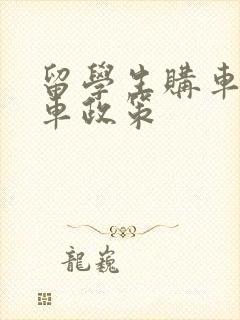 留學生購車
車政策
龍巍